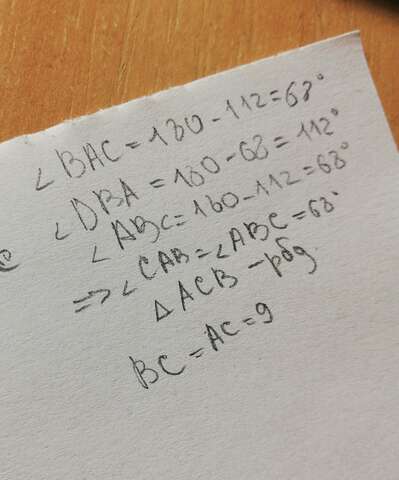 ∠BAC = 180 - 112 = 68°
∠DBA = 180 - 68 = 112°
∠ABC = 180 - 112 = 68°
=> ∠CAB = ∠ABC = 68°
△ACB - рбд
BC = AC = 9